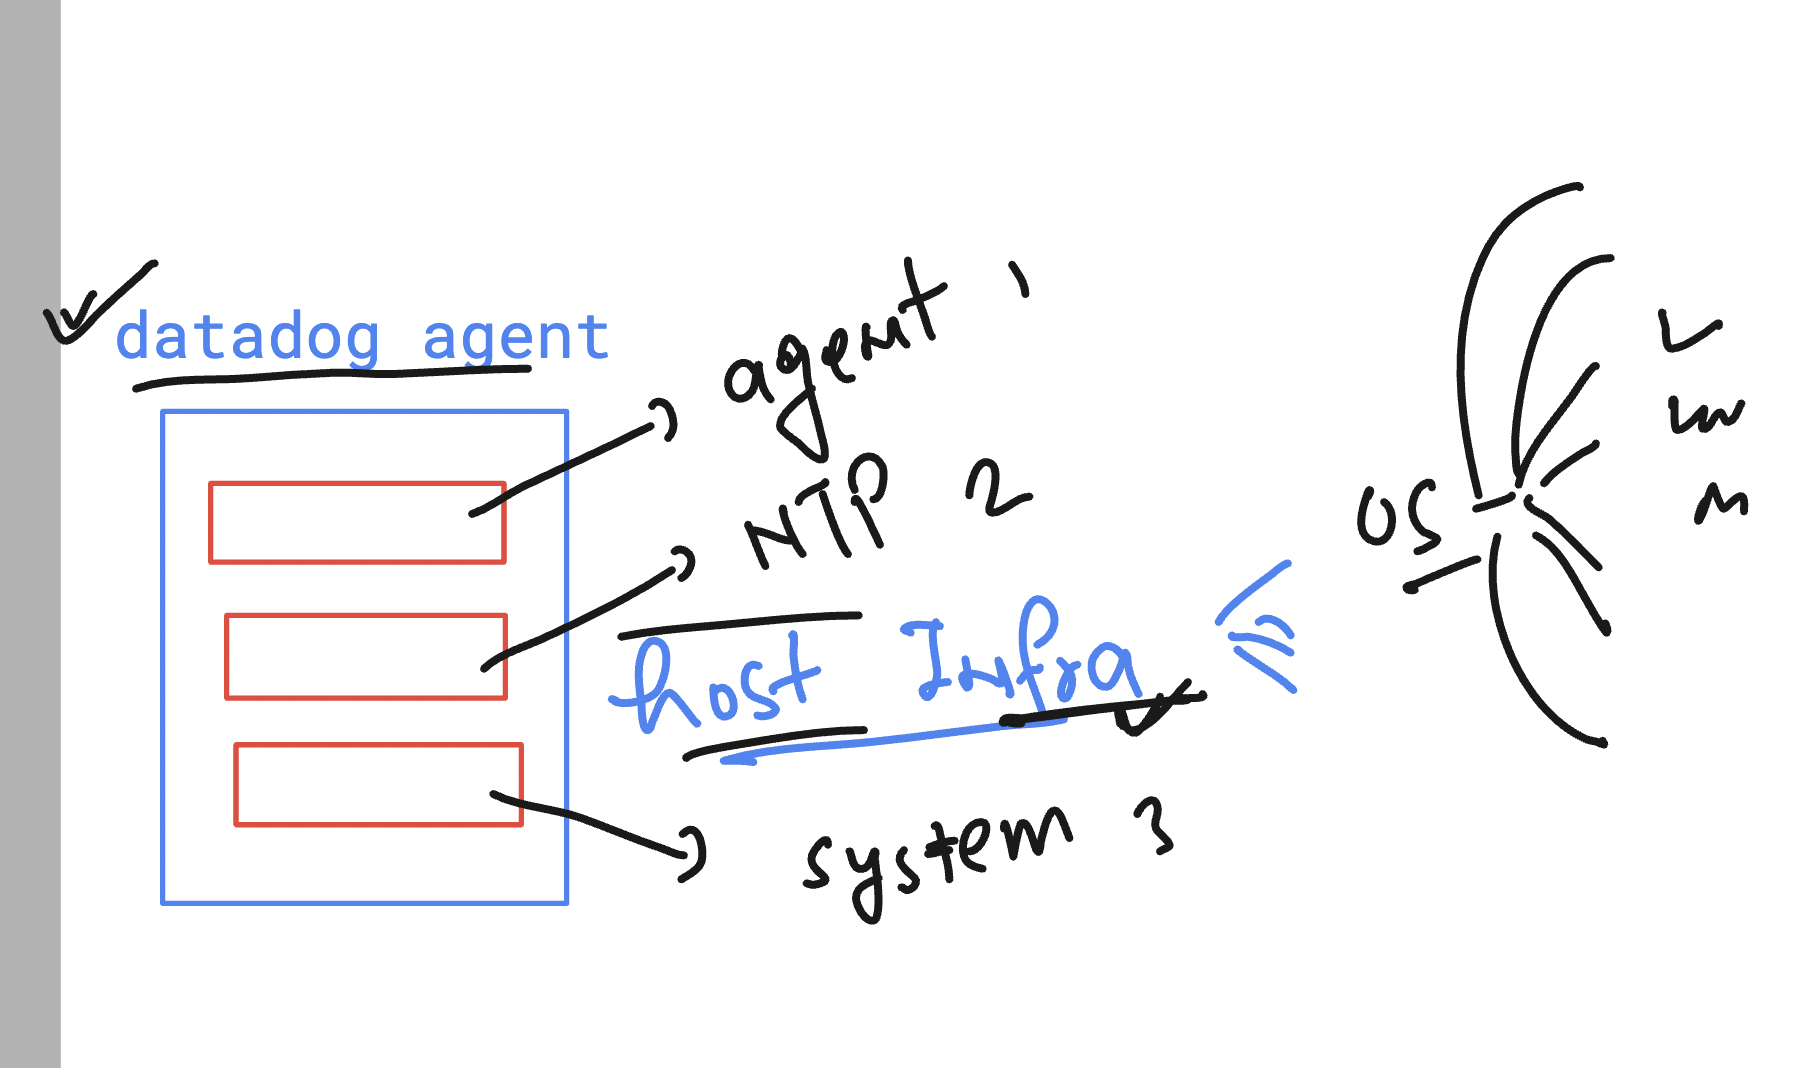 datadog agent
agent 1
NTP 2
OS
host Infra
system 3